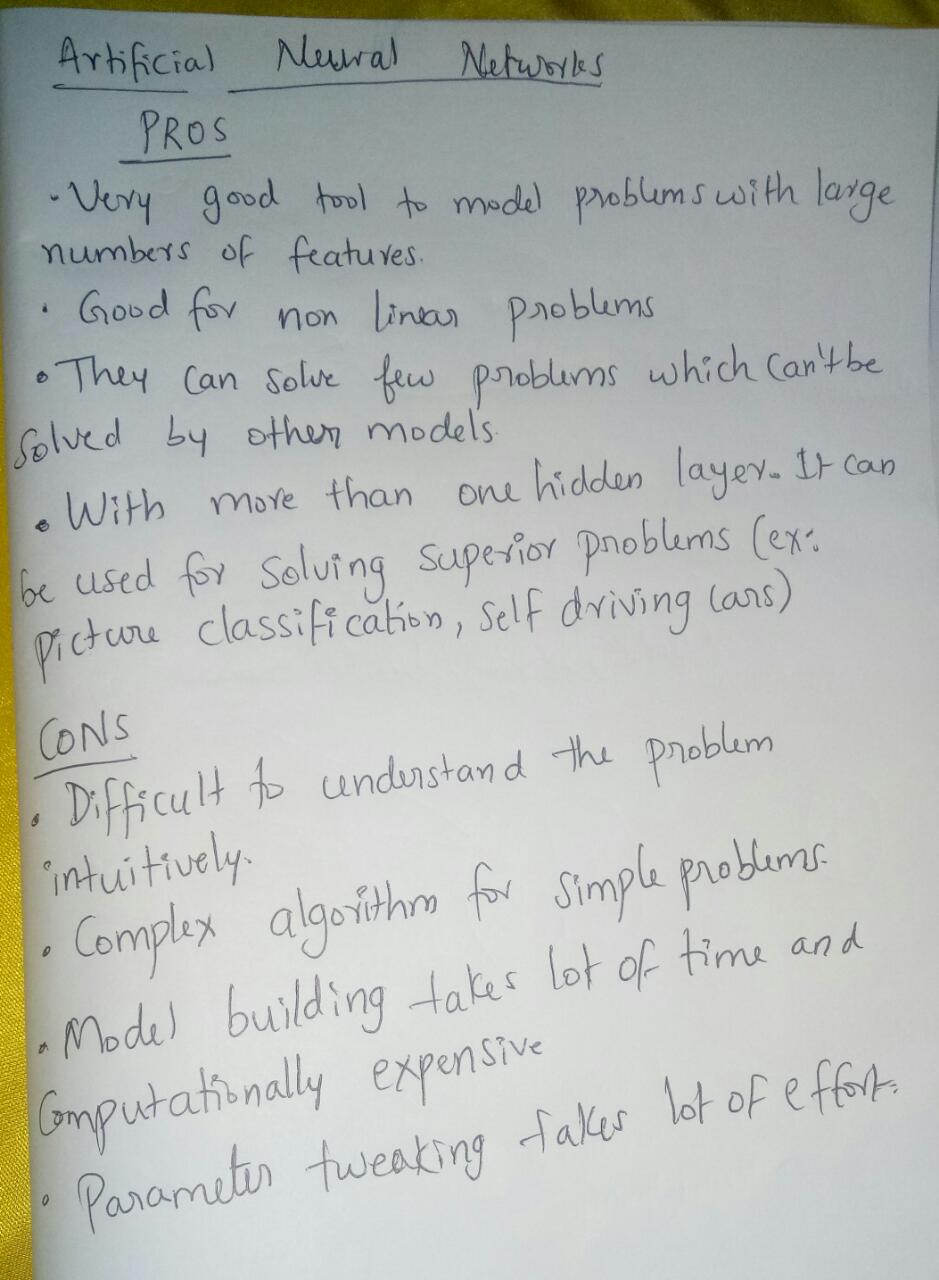 Artificial Neural Networks
PROS
• Very good tool to model problems with large
numbers of features.
• Good for non linear problems
• They can solve few problems which can't be
solved by other models.
• With more than one hidden layer. It can
be used for solving superior problems (ex:
picture classification, self driving cars)
CONS
• Difficult to understand the problem
intuitively.
• Complex algorithm for simple problems.
• Model building takes lot of time and
Computationally expensive
• Parameter tweaking takes lot of effort.